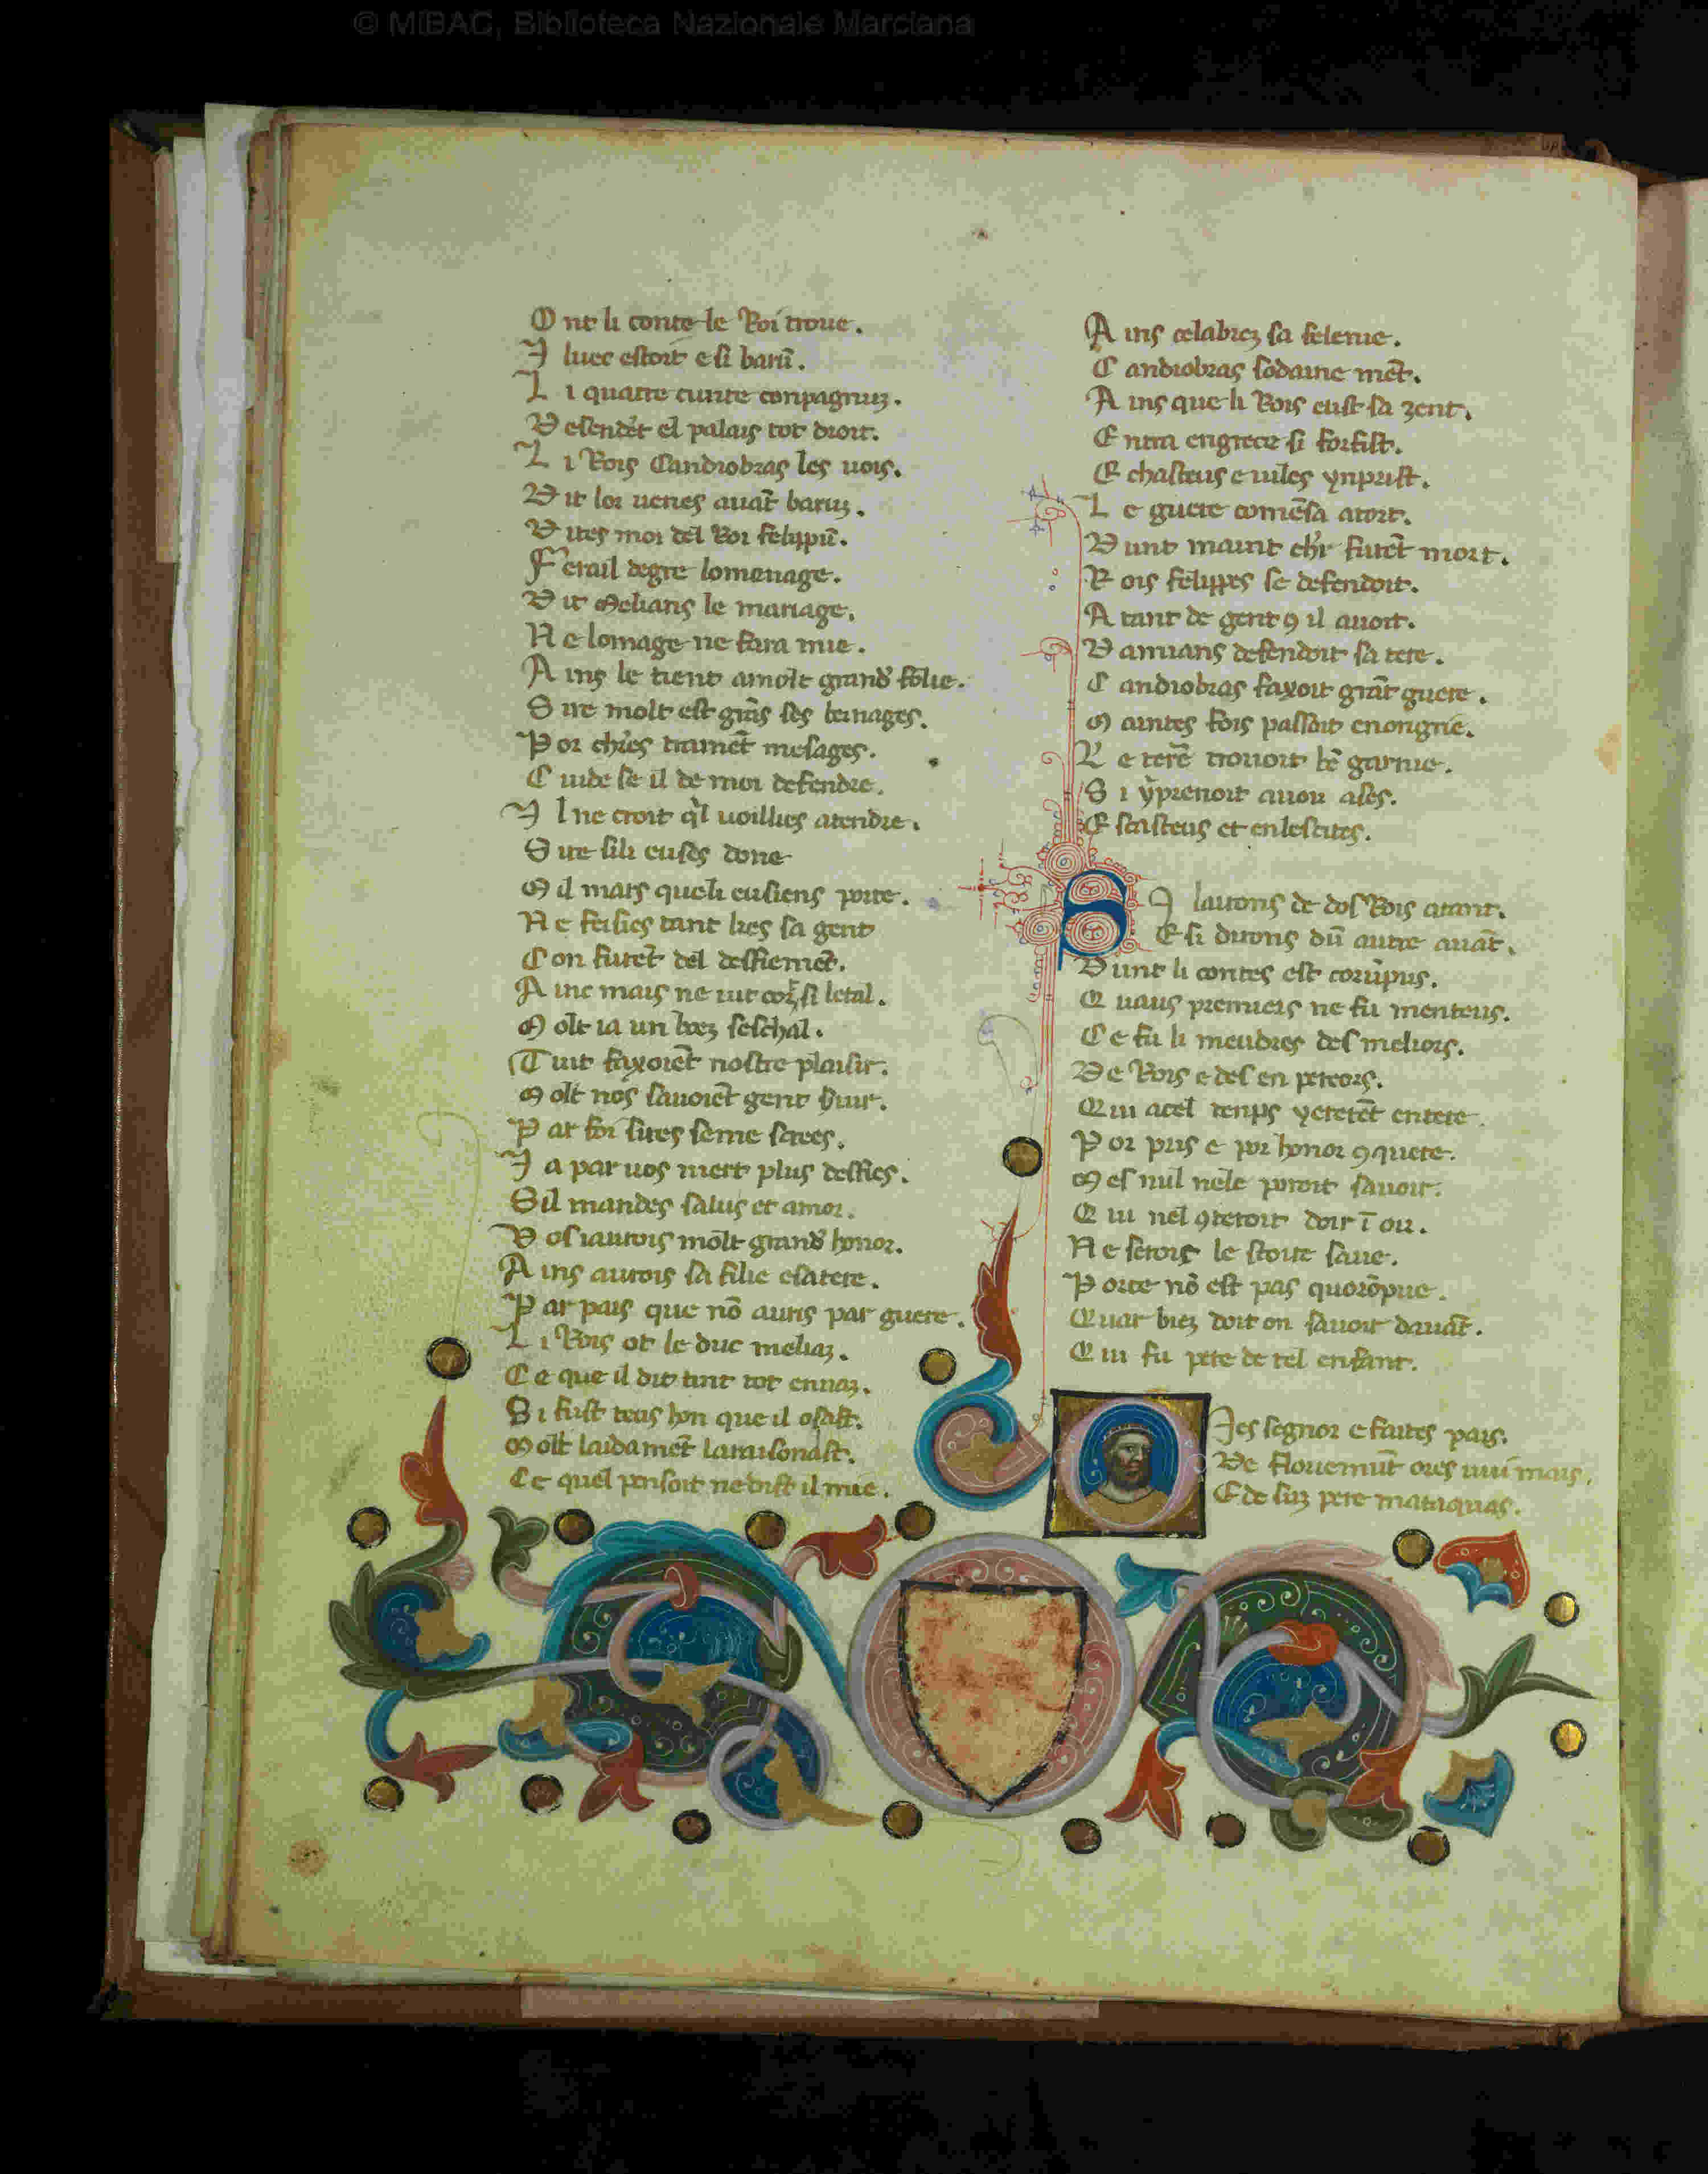 © MiBAC, Biblioteca Nazionale Marciana
O nt li conte le Roi troue.
I luec estoit e si barũ.
L i quatre cunte conpagnuz.
D esendẽt el palais tot droit.
L i Rois Candiobras les uois.
D it lor uenes auãt baruz.
D ites moi del Roi felippũ.
F erail degre lomenage.
D it melians le mariage.
N e lomage ne fara mie.
A ins le tient a molt grand folie.
S ire molt est grãs ses barnages.
P or ches tramẽt mesages.
C uide se il de moi defendre.
I l ne croit q'l uoillies atendre.
S ire sili euses done
M il mars queli eusiens porte.
N e feisies tant lies sa gent
C on furẽt del deffiemẽt.
A inc mais ne uit cors si letal.
M olt ia un boz seschal.
T uit fayoiẽt nostre plaisir.
M olt nos sauoiẽt gent
P ar foi sires seme
I a par uos niert plus deffies.
S il mandes salus et amor.
V os iaurois molt grand honor.
A ins aurois sa filie e sa tere.
P ar pais que nõ auris par guere.
L i Rois ot le duc meliaz.
C e que il dit tint tot ennaz.
S i fust teus hon que il osast.
M olt laidamẽt laraisonast.
C e quel pensoit ne dist il mie.
A ins celabrez sa felenie.
C andiobras sodaine mẽt.
A ins que li Rois eust sa zent.
E ntra engrece si forfist.
E chasteus e uiles ynprist.
L e guere comẽsa atort.
D unt maint chr furẽt mort.
R ois felippes se defendoit.
A tant de gent 9 il auoit.
D amians defendoit sa tere.
C andiobras fayoit grãt guere.
M aintes fois passoit enongrie.
L e terẽ trouoit bẽ garnie.
S i yprenoit auou ases.
E scasteus et enles cites.
S I lairons de dos Rois atant.
E si dirons dũ autre auãt.
D unt li contes est corũpus.
Q uaus premiers ne fu menteus.
C e fu li meudres des meliors.
D e Rois e des en pereors.
Q ui acel tenps yeretẽt entere.
P or pris e por honor 9quere.
M es nul nele poroit sauoir.
Q ui nel 9teroit doir ĩ oir.
N e serois le stoire saue.
P orce nõ est pas quorõpue.
Q uar biez doit on sauoir dauãt.
Q ui fu pere de tel enfant.
O Ies segnor e faites pais.
De flouemũt ores uiii mais.
E de suz pere mataquas.